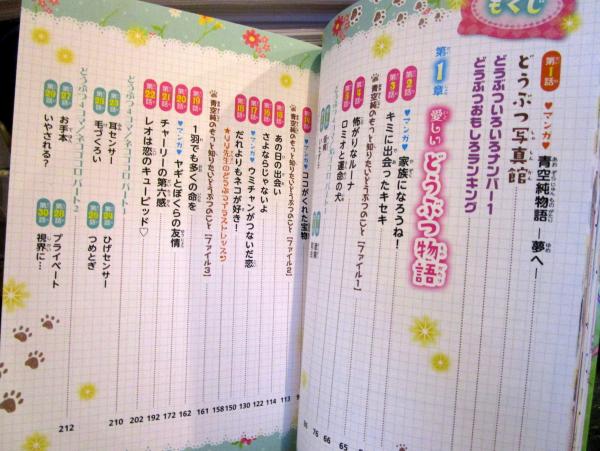 もくじ
第1話 ♥マンガ♥ 青空純物語 ―夢へ―
どうぶつ写真館
どうぶついろいろナンバー1
どうぶつおもしろランキング
第1章 愛しい どうぶつ物語
第2話 ♥マンガ♥ 家族になろうね!
第3話 キミに出会ったキセキ
青空純のもっと知りたいどうぶつのこと[ファイル1]
怖がりなルーナ
ロミオと運命の犬
ココがくれた宝物
青空純のもっと知りたいどうぶつのこと[ファイル2]
あの日の出会い
さよならじゃないよ
♥マンガ♥ ウミチャンがつないだ恋
第18話 だれよりもネコが好き!
青空純のもっと知りたいどうぶつのこと[ファイル3]
第19話 1羽でも多くの命を
第20話 ♥マンガ♥ ヤギとぼくらの友情
第21話 チャーリーの第六感
第22話 レオは恋のキューピッド♡
どうぶつ4コマ/ネコゴコロ パート1
第23話 耳センサー
第24話 ひげセンサー
第25話 毛づくろい
第26話 つめとぎ
どうぶつ4コマ/ネコゴコロ パート2
第27話 お手本
第28話 プライベート
第29話 いやされる?
第30話 視界に…
76
66
65
113
114
122
130
150
158
161
162
172
192
202
210
212